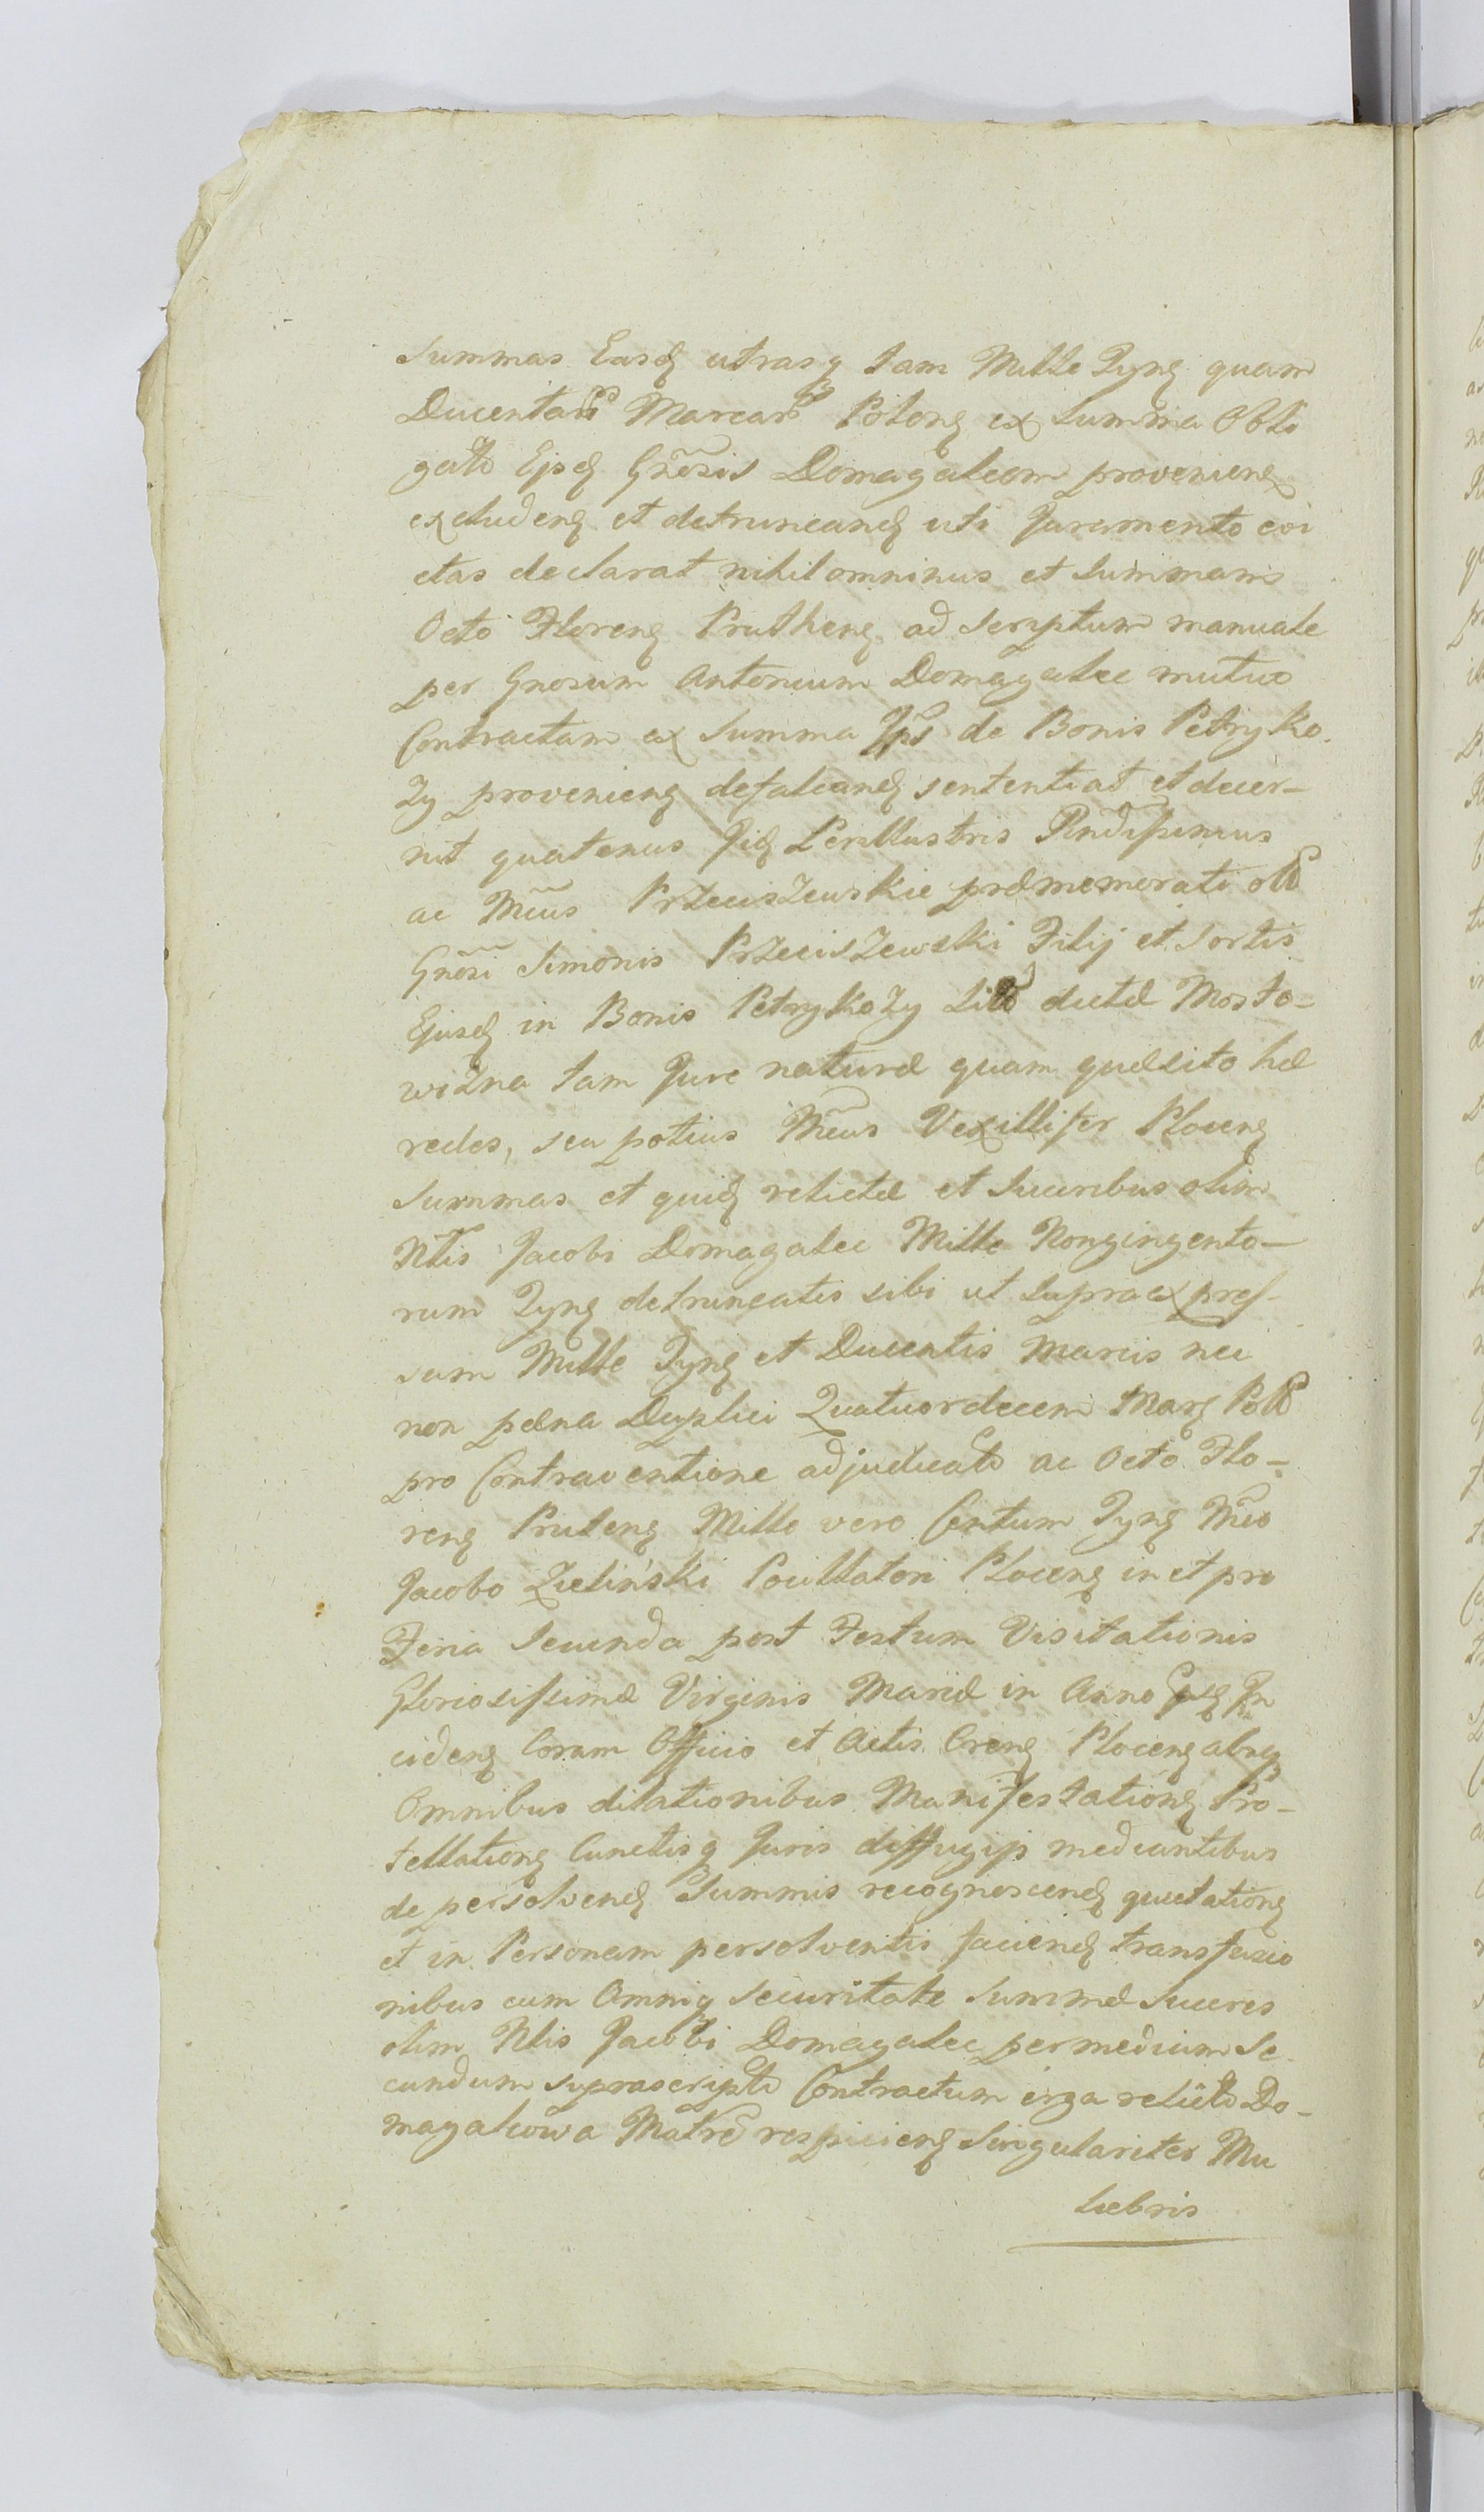 Summas Easq utrasq tam Mille Tynq quam
Ducentar Marcar Polonq ex Summa Obli
gato Ejsq Gnosis Domagalcom provenienq
excludenq et detruncandq uti Juramento evi
ctas declarat nihilominus et Summam
Octo Florenq Pruthenq ad Scriptum manuale
per Gnosum Antonium Domagalec mutuo
Contractam ex Summa Ips de Bonis Petryko
zy provenienq defalcandq sententiat et decer-
nit quatenus Jidq Perillustris Rndissimus
ac Mcus Przeciszewskie prӕmemorati olt
Gnosi Simonis Przeciszewski Filij et Sortis
Ejusq in Bonis Petrykozy dictӕ Mosto-
wizna tam Jure naturӕ quam quӕsito hӕ
redes, seu potius Mcus Vexillifer Plocenq
Summas et quidq relictӕ et Succribus olim
Nlis Jacobi Domagalec Mille Nongingento-
rum Tynq detruncatis sibi ut supra expres-
sum Mille Tynq et Ducentis Marcis nec
non pӕna Duplici Quatuordecem Marq Poll
pro Contraventione adjudicato ac Octo Flo-
renq Prutenq Mille vero Centum Tynq Mco
Jacobo Zieliński Pocillatori Plocenq in et pro
Feria Secunda post Festum Visitationis
Gloriosissimӕ Virginis Mariӕ in Anno In
cidenq Coram Officio et Actis Crenq Plocenq absq
Omnibus dilationibus Manifestationq Pro-
tellationq Cunctisq Juris diffugijs mediantibus
de persolvendq Summis recognoscendq quietationq
et in Personam persolventis faciendq transfusio
nibus cum Omniq Securitate Summӕ Succres
olim Nlis Jacobi Domagalec per medium Se
cundum suprascripto Contractum erga relicto Do-
magalcowa Matre respicienq Singulariter Mu
liebris